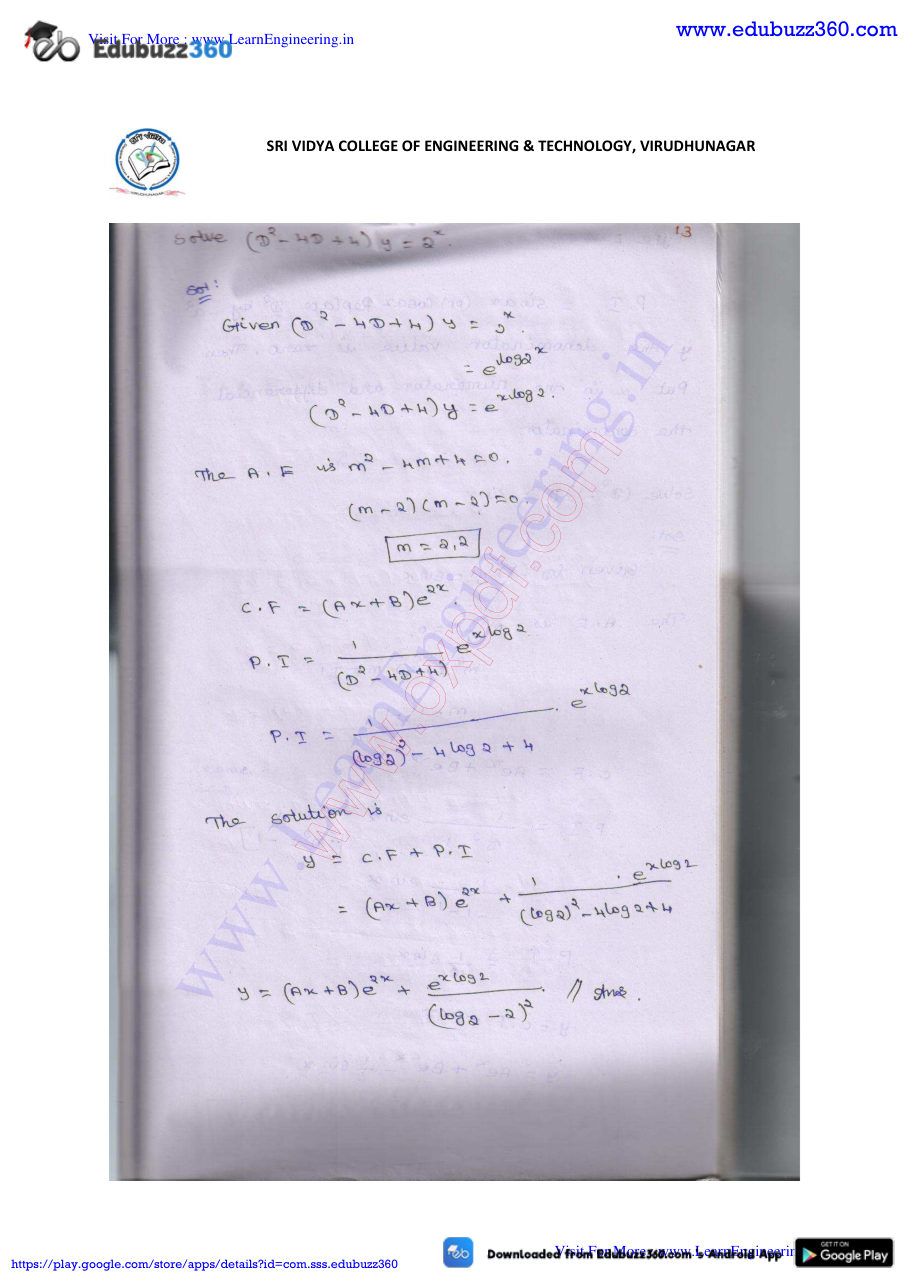 Visit For More : www.LearnEngineering.in
Edubuzz360
www.edubuzz360.com
SRI VIDYA COLLEGE OF ENGINEERING & TECHNOLOGY, VIRUDHUNAGAR
13
Solve (D² - 4D + 4) y = 2ˣ.
Sol:
Given (D² - 4D + 4) y = 2ˣ.
= e^{log2^x}
(D² - 4D + 4) y = e^{x log 2}.
The A.E is m² - 4m + 4 = 0.
(m - 2) (m - 2) = 0.
m = 2, 2
C.F = (Ax + B) e^{2x}.
P.I = 1/(D² - 4D + 4) e^{x log 2}
P.I = 1/((log 2)² - 4 log 2 + 4) . e^{x log 2}
The solution is
y = C.F + P.I
= (Ax + B) e^{2x} + 1/((log 2)² - 4 log 2 + 4) . e^{x log 2}
y = (Ax + B) e^{2x} + e^{x log 2}/(log 2 - 2)². // Ans.
www.LearnEngineering.in
www.oxpdf.com
Downloaded from Edubuzz360.com's Android App
Visit For More : www.LearnEngineerin
GET IT ON
Google Play
https://play.google.com/store/apps/details?id=com.sss.edubuzz360